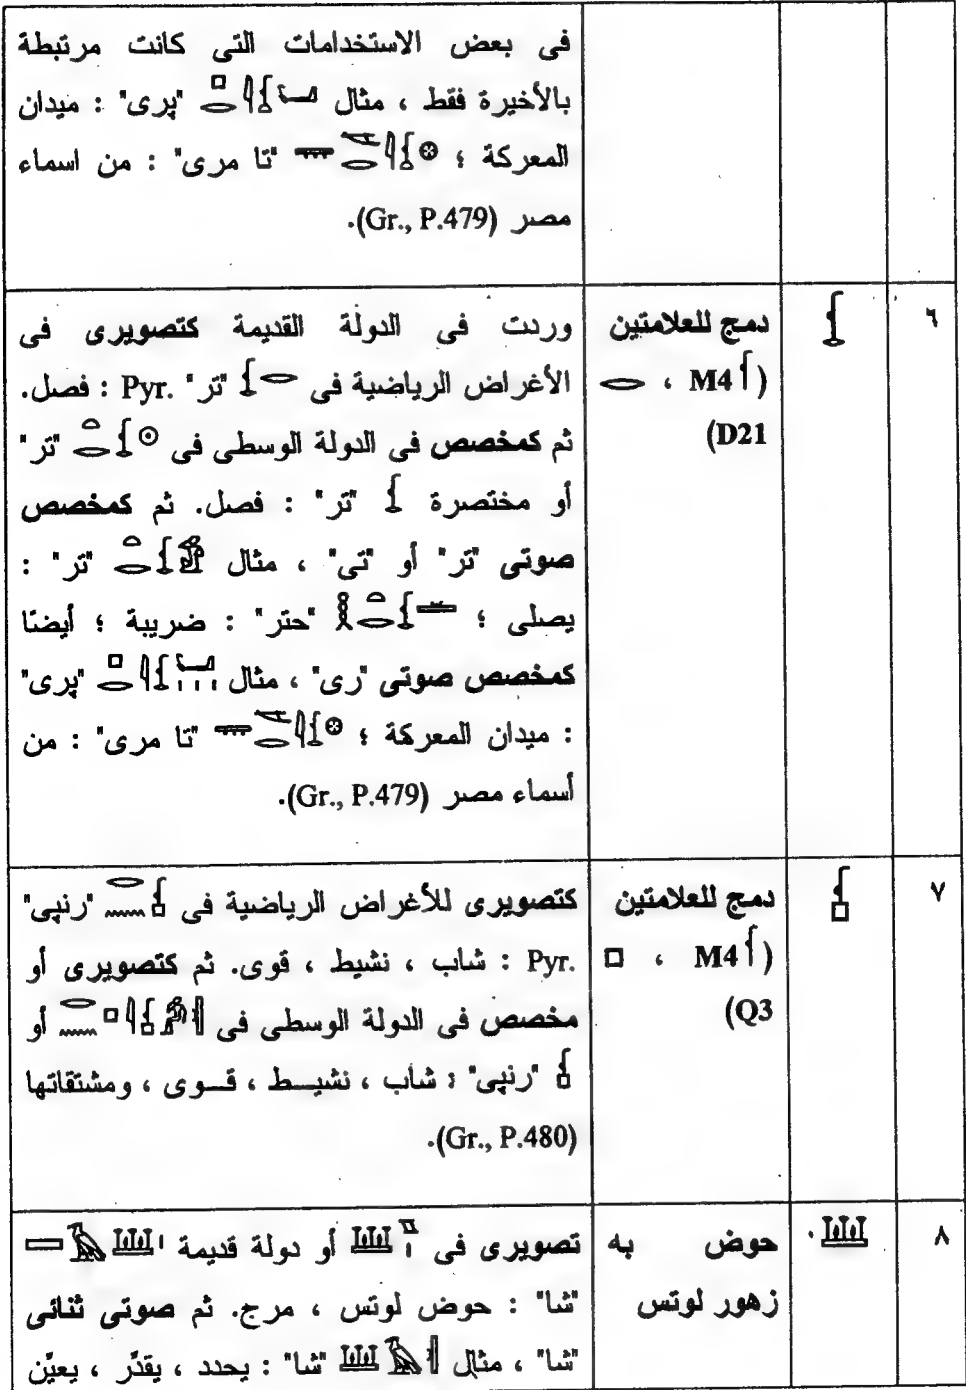 فى بعض الاستخدامات التى كانت مرتبطة
بالأخيرة فقط ، مثال "پرى" : ميدان
المعركة ؛ "تا مرى" : من اسماء
مصر (Gr., P.479).
٦
دمج للعلامتين
(M4 ،
D21)
وردت فى الدولة القديمة كتصويرى فى
الأغراض الرياضية فى "تر" Pyr. : فصل.
ثم كمخصص فى الدولة الوسطى فى "تر"
أو مختصرة "تر" : فصل. ثم كمخصص
صوتى "تر" أو "تى" ، مثال "تر" :
يصلى ؛ "حتر" : ضريبة ؛ أيضًا
كمخصص صوتى "رى" ، مثال "پرى"
: ميدان المعركة ؛ "تا مرى" : من
أسماء مصر (Gr., P.479).
٧
دمج للعلامتين
(M4 ،
Q3)
كتصويرى للأغراض الرياضية فى "رنپى"
Pyr. : شاب ، نشيط ، قوى. ثم كتصويرى أو
مخصص فى الدولة الوسطى فى أو
"رنپى" : شاب ، نشيـــط ، قـــوى ، ومشتقاتها
(Gr., P.480).
٨
حوض به
زهور لوتس
تصويرى فى أو دولة قديمة
"شا" : حوض لوتس ، مرج. ثم صوتى ثنائى
"شا" ، مثال "شا" : يحدد ، يقدَّر ، يعيَّن